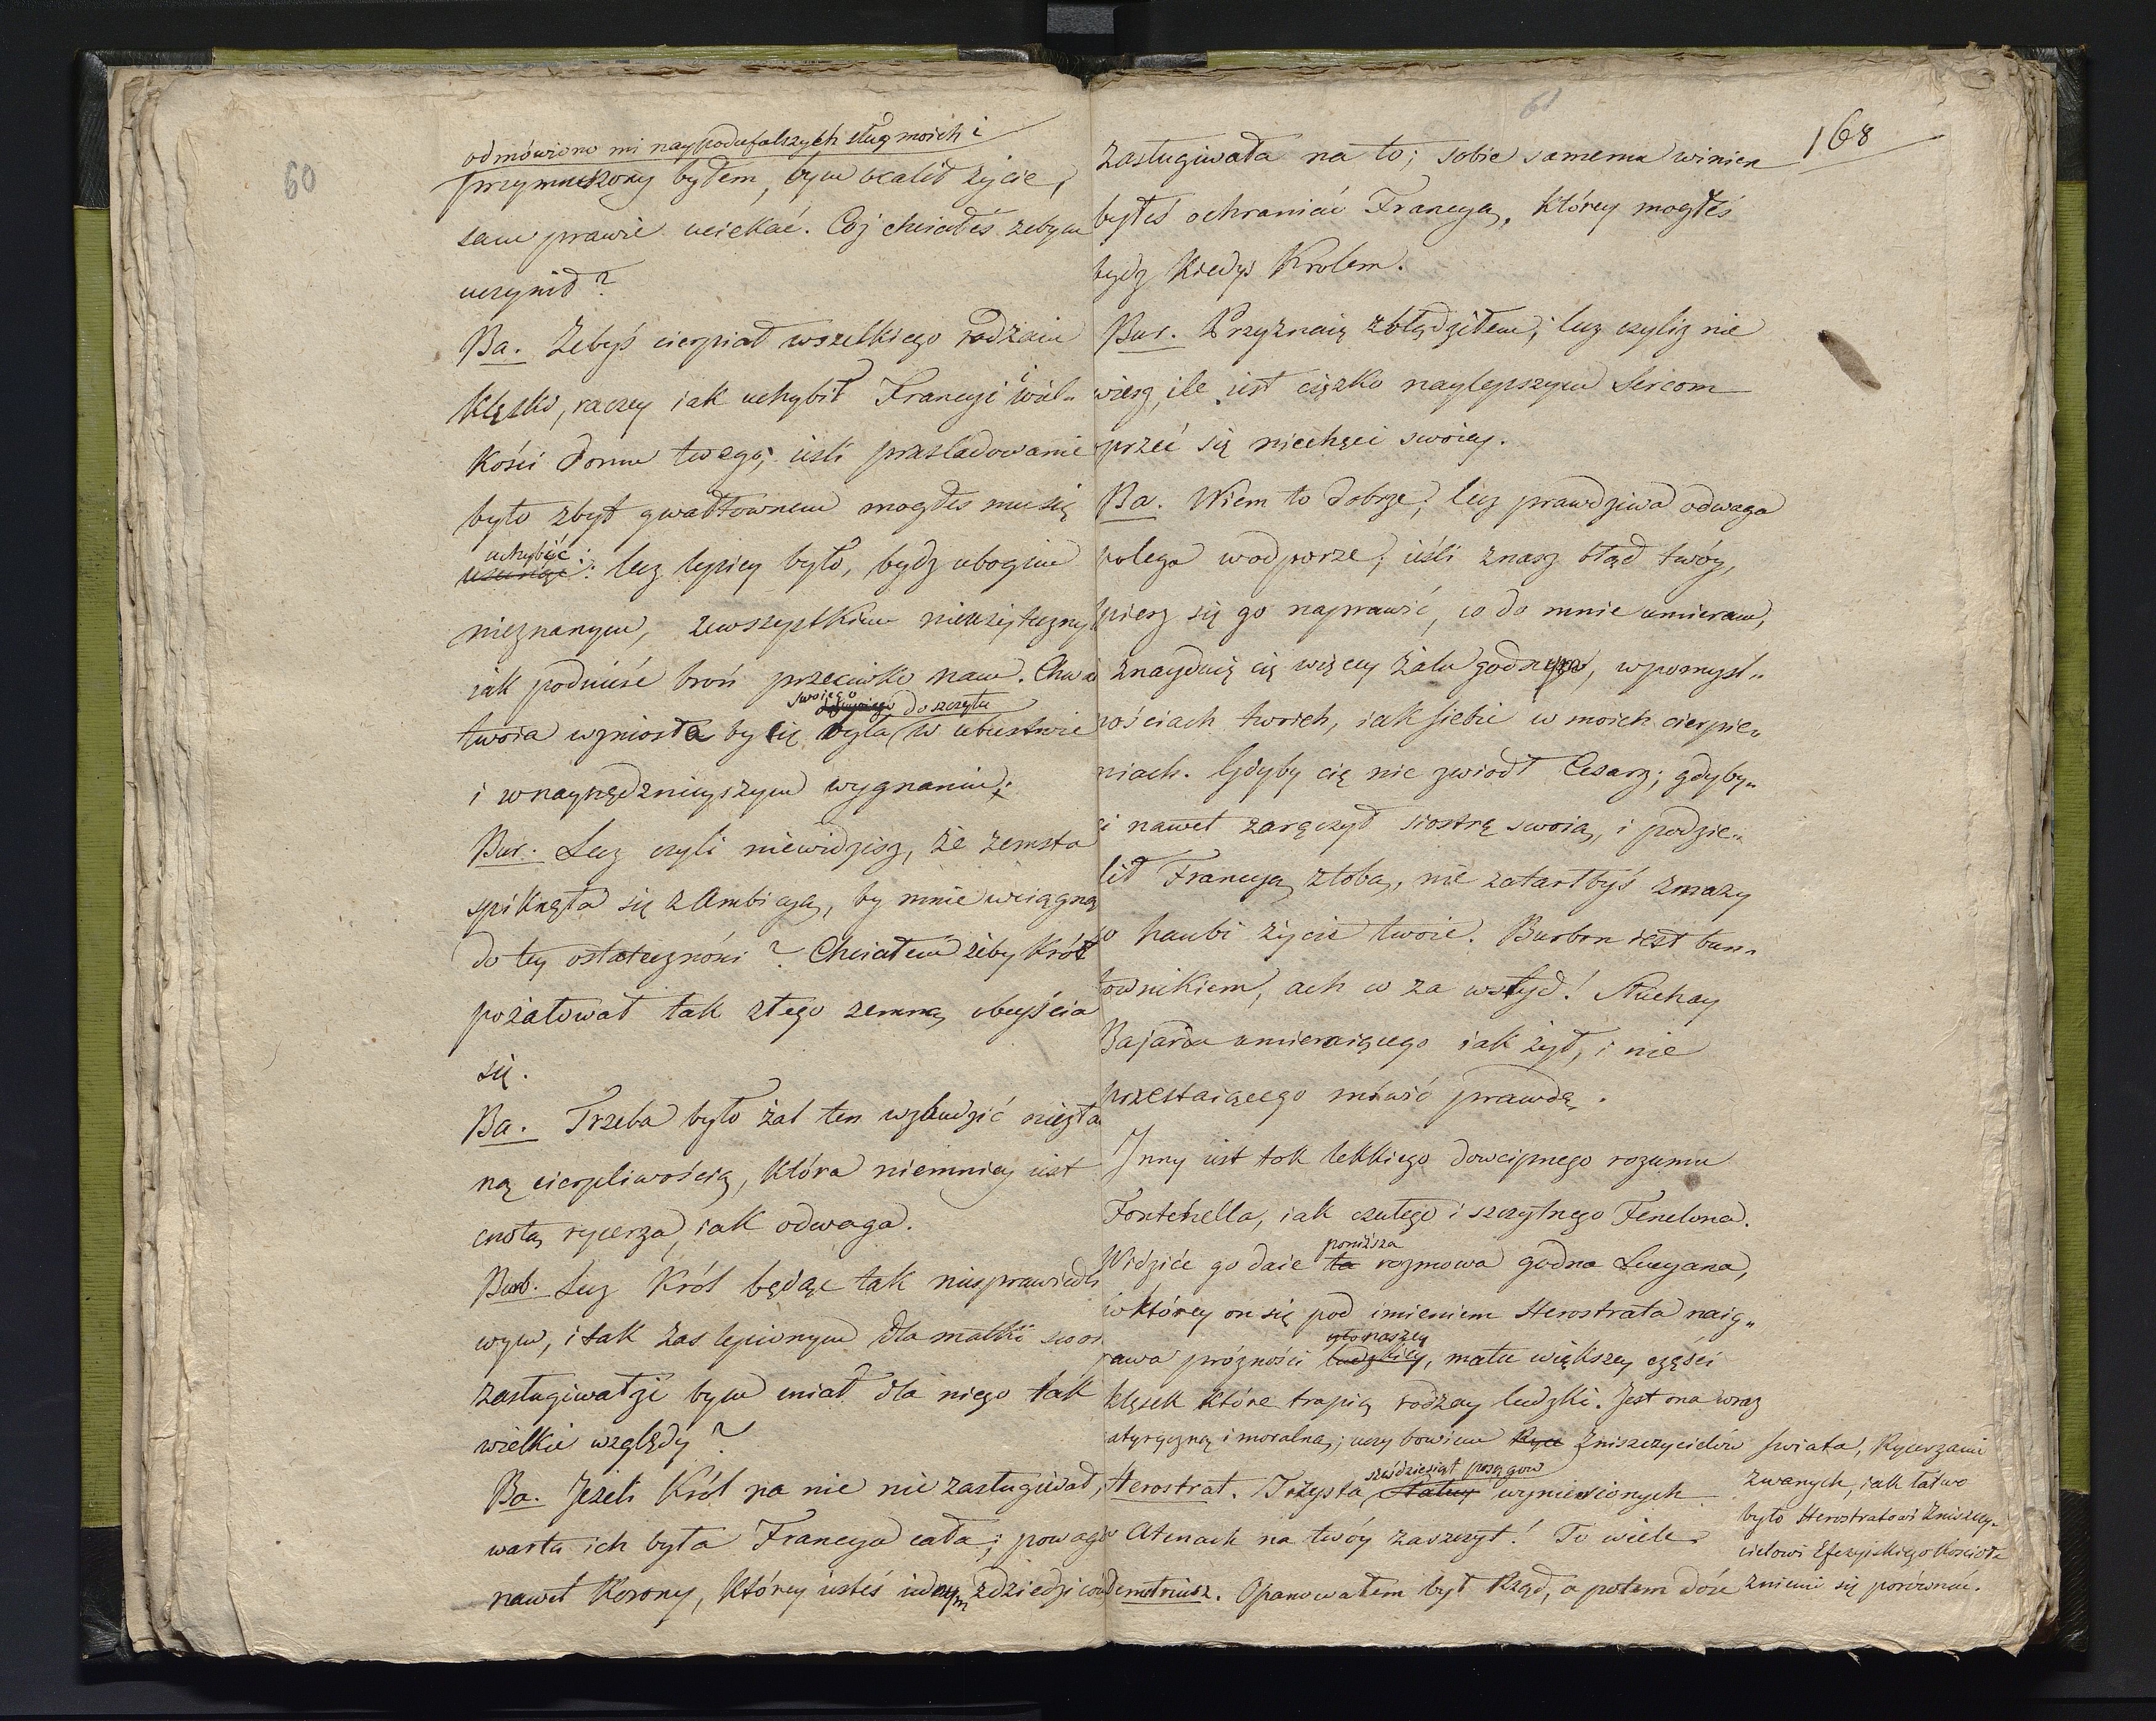 60
odmówiono mi naypodufalszych sług moich i
przymuszony byłem, bym ocalił życie,
sam prawie uciekać. Cóż chciałeś żebym
uczynił?
Ba. Żebyś cierpiał wszelkiego rodzaiu
klęski, raczey iak uchybił Francyi i wiel„
kości domu twego; ieśli prześladowanie
było zbyt gwałtownem mogłeś mu się
uchybić
usunąć: lecz lepiey było, bydz ubogim
nieznanym, zewszystkiem nieużyteczny
iak podnieść broń przeciwko nam. Chwa
swoiego do szczytu
twoia wzniosła by się była w ubustwie
i w naynędznieyszym wygnaniu;
Bur. Lecz czyli niewidzisz, że zemsta
spiknęła się z Ambicyą, by mnie wciągną
do tey ostateczności? Chciałem żeby Król
pożałował tak złego zemną obeyścia
się.
Ba. Trzeba było żal ten wzbudzić niezła
ną cierpliwością, która niemniey iest
cnotą rycerza, iak odwaga.
Burb. Lecz Król będąc tak niesprawiedli
wym, i tak zaslepionym dla matki swoi
zasługiwałże bym miał dla niego tak
wielkie względy?
Ba. Jeżeli Król na nie nie zasługiwał,
warta ich była Francya cała; powaga
nawet Korony, którey iesteś iednym zdziedziców
61
168
zasługiwała na to; sobie samemu winien
byłeś ochraniać Francyą, którey mogłeś
bydz kiedyś Krolem.
Bur. Przyznaię zbłądziłem; lecz czyliż nie
wiesz, ile iest ciężko naylepszym sercom
przeć się niechęci swoiey.
Ba. Wiem to dobrze, lecz prawdziwa odwaga
polega w odporze; ieśli znasz błąd twóy,
spiesz się go naprawić, co do mnie umieram,
znayduię cię więcey żalu godnym, w pomyśl„
nościach twoich, iak siebie w moich cierpie„
niach. Gdyby cię nie zwiodł Cesarz; gdyby„
ci nawet zaręczył siostrę swoią, i podzie„
lił Francyą z tobą, nie zatarłbyś zmazy
co hańbi życie twoie. Burbon iest bun„
townikiem, ach co za wstyd! Słuchay
Bajarda umieraiącego iak żył, i nie
przestaiącego mówić prawdę.
Inny iest tok lekkiego dowcipnego rozumu
Fontenella, iak czułego i szczytnego Fenelona.
poniższa
Widzieć go daie ta rozmowa godna Lucyana,
w którey on się pod imieniem Herostrata naig„
naszey
rawa próżności ludzkiey, matce większey części
klęsek które trapią rodzay ludzki. Jest ona wraz
satyryczną i moralną; uczy bowiem Ryce zniszczycielów świata, Rycerzami
zwanych, iak łatwo
było Herostratowi zniszczy„
cielowi Efezyjskiego Kościoła
z niemi się porównać.
sześdziesiąt posągow
Herostrat. Trzysta Statuy wyniesionych
w Atenach na twóy zaszczyt! To wiele
Demetriusz. Opanowałem był Rząd, a potem dość